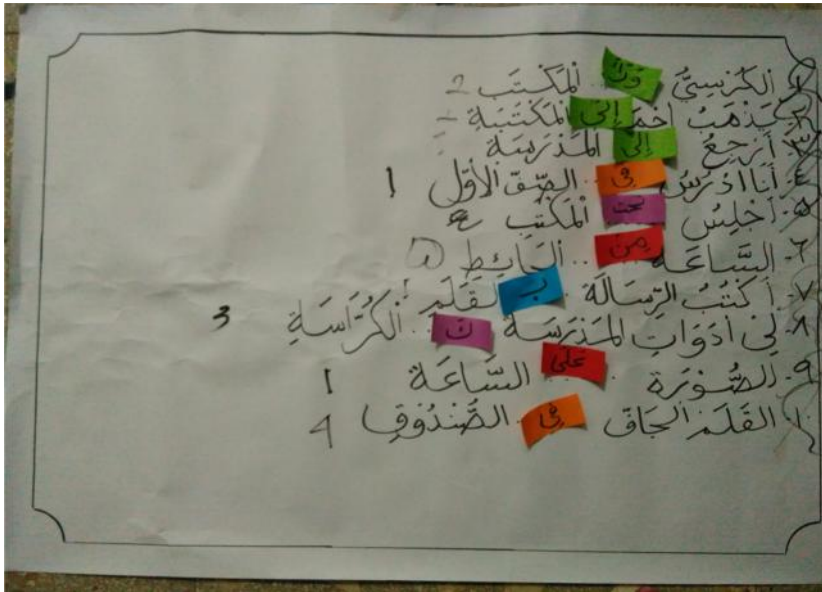 ١. الْكُرْسِيُّ فَوْقَ الْمَكْتَب 2
٢. يَذْهَبُ إِلَى الْمَكْتَبَةِ
٣. أَرْجِعُ إِلَى الْمَدْرَسَةِ
٤. أَنَا ادْرُسُ فِي الصَّفِّ الْأَوَّلِ 1
٥. أَجْلِسُ تحت الْمَكْتَبِ
٦. السَّاعَة مِنْ الْحَائِطِ
٧. أَكْتُبُ الرِّسَالَة بِ الْقَلَمِ
٨. لِيْ أَدَوَاتِ الْمَدْرَسَة كَ الْكُرَّاسَةِ 3
٩. الصُّوْرَة عَلَى السَّاعَة 1
١٠. القَلَمَ الْجَافّ فِي الصُّنْدُوْقِ 4